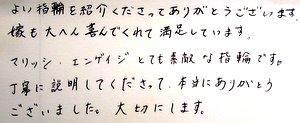 よい指輪を紹介くださってありがとうございます。
嫁も大へん喜んでくれて満足しています。
マリッジ、エンゲイジとても素敵な指輪です。
丁寧に説明してくださって、本当にありがとう
ございました。大切にします。